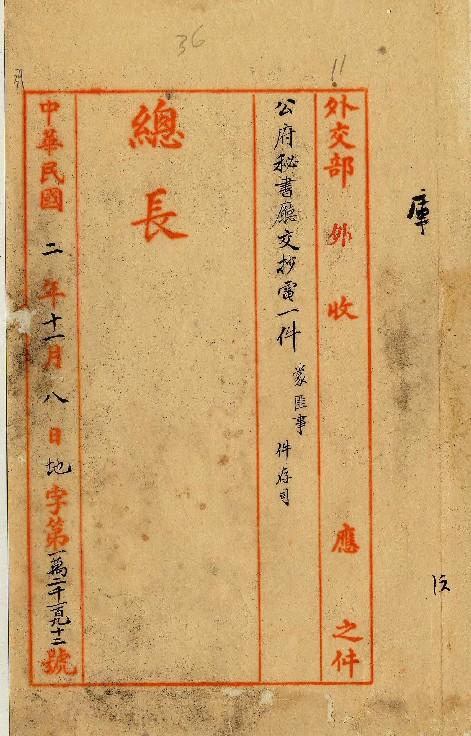 36
庫
外交部 外 收 應 之件
公府秘書廳交抄電一件 蒙匪事 件存司
總長
中華民國二年十一月八日地字第一萬二千百九十二號